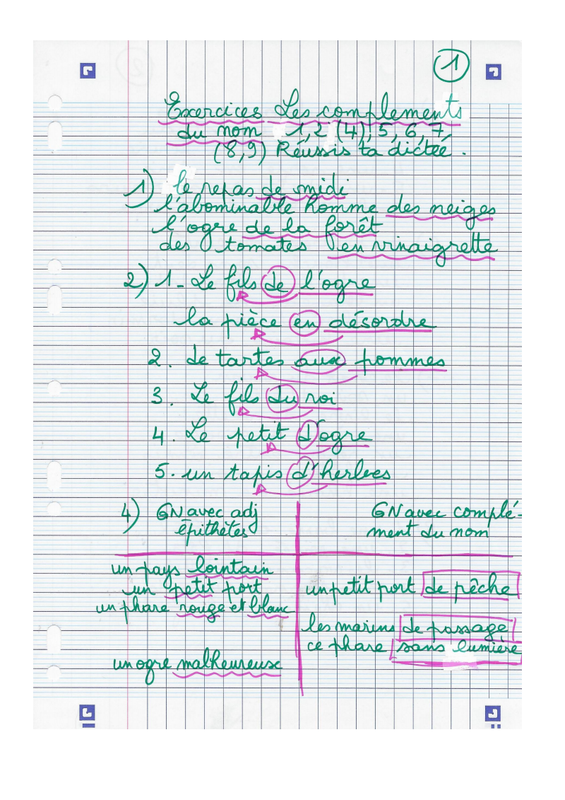 1
Exercices Les complements
du nom 1, 2 (4), 5, 6, 7,
(8,9) Réussis ta dictée.
1) Le repas de midi
l'abominable homme des neiges
l'ogre de la forêt
des tomates en vinaigrette
2) 1- Le fils de l'ogre
la pièce en désordre
2. de tartes aux pommes
3. Le fils du roi
4. Le petit d'ogre
5. un tapis d'herbes
4) GN avec adj
épithètes
GN avec complé-
ment du nom
un pays lointain
un petit port
un phare rouge et blanc
un ogre malheureux
un petit port de pêche
les marins de passage
ce phare sans lumière